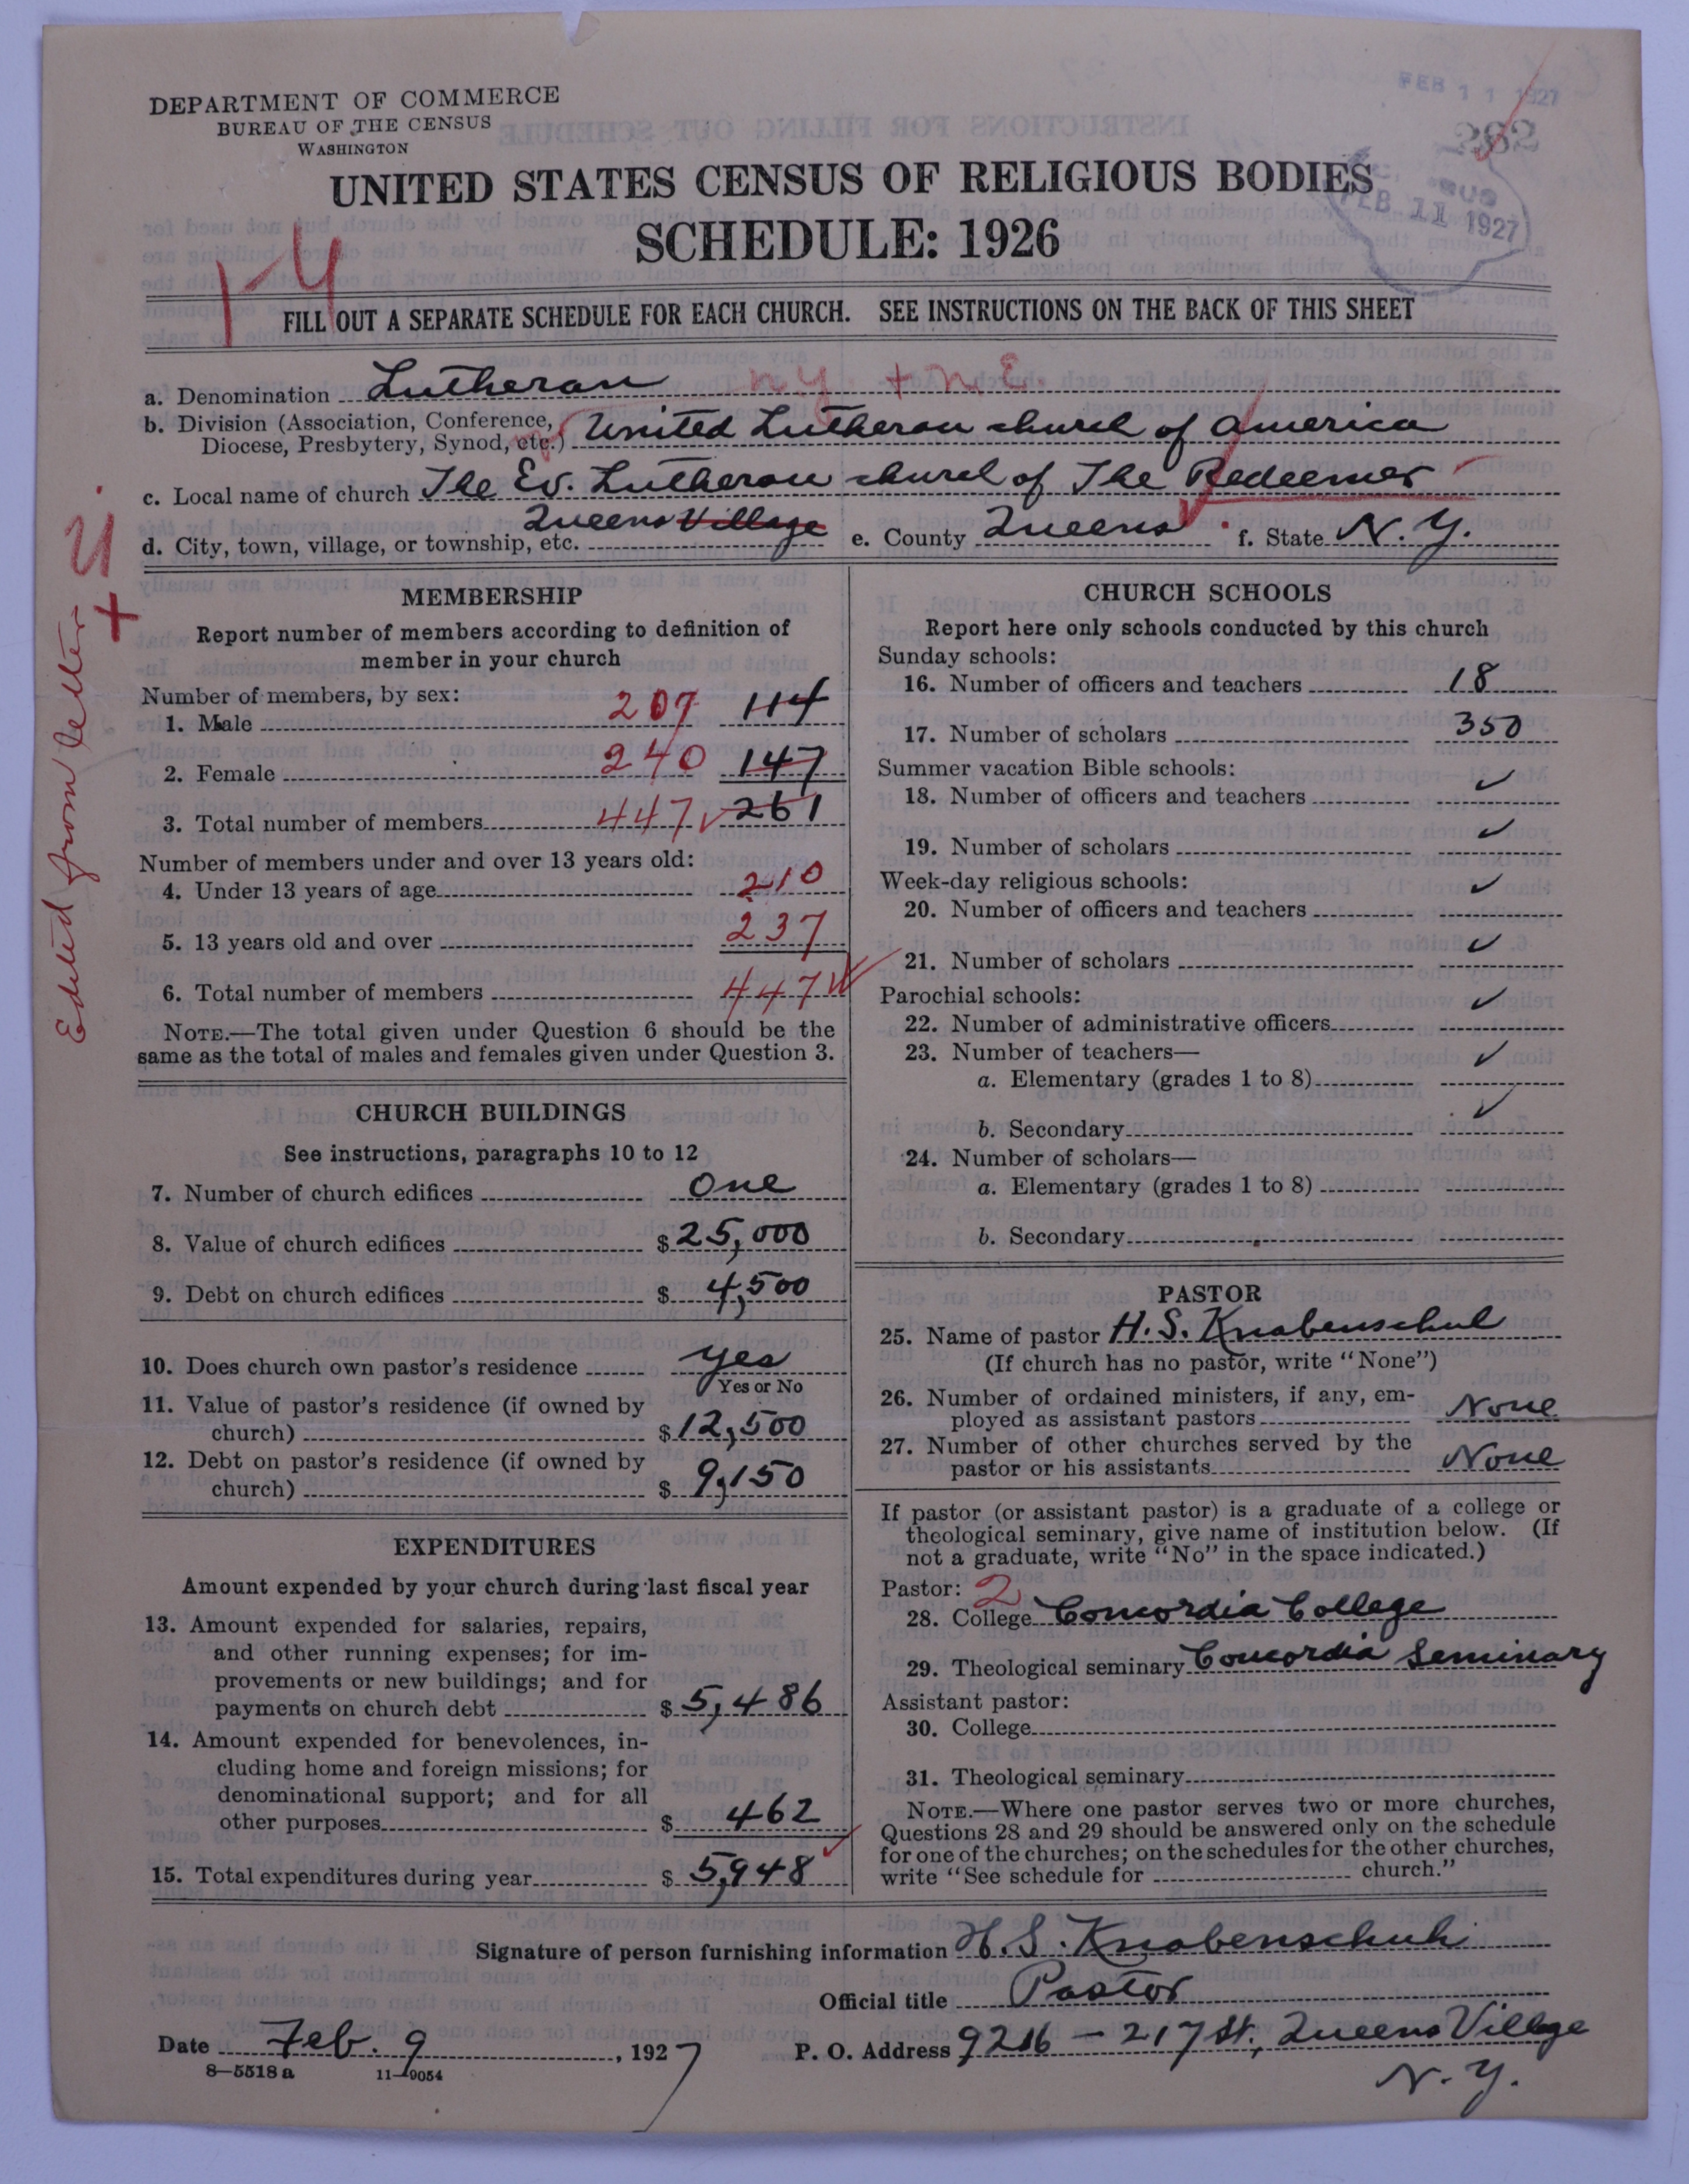 DEPARTMENT OF COMMERCE
BUREAU OF THE CENSUS
WASHINGTON
FEB 11 1927
282
FEB 11 1927
UNITED STATES CENSUS OF RELIGIOUS BODIES
SCHEDULE: 1926
FILL OUT A SEPARATE SCHEDULE FOR EACH CHURCH. SEE INSTRUCTIONS ON THE BACK OF THIS SHEET
a. Denomination Lutheran n.y. + n.E.
b. Division (Association, Conference, Diocese, Presbytery, Synod, etc.) United Lutheran church of america
c. Local name of church The Ev. Lutheran church of The Redeemer
d. City, town, village, or township, etc. Queens Village e. County Queens f. State N. Y.
Edited from letter
MEMBERSHIP
Report number of members according to definition of
member in your church
Number of members, by sex:
1. Male 207 114
2. Female 240 147
3. Total number of members 447 261
Number of members under and over 13 years old:
4. Under 13 years of age 210
5. 13 years old and over 237
6. Total number of members 447
NOTE.—The total given under Question 6 should be the
same as the total of males and females given under Question 3.
CHURCH BUILDINGS
See instructions, paragraphs 10 to 12
7. Number of church edifices One
8. Value of church edifices $25,000
9. Debt on church edifices $ 4,500
10. Does church own pastor's residence yes
Yes or No
11. Value of pastor's residence (if owned by
church) $12,500
12. Debt on pastor's residence (if owned by
church) $ 9,150
EXPENDITURES
Amount expended by your church during last fiscal year
13. Amount expended for salaries, repairs,
and other running expenses; for im-
provements or new buildings; and for
payments on church debt $5,486
14. Amount expended for benevolences, in-
cluding home and foreign missions; for
denominational support; and for all
other purposes $ 462
15. Total expenditures during year $ 5,948
CHURCH SCHOOLS
Report here only schools conducted by this church
Sunday schools:
16. Number of officers and teachers 18
17. Number of scholars 350
Summer vacation Bible schools:
18. Number of officers and teachers ✓
19. Number of scholars ✓
Week-day religious schools:
20. Number of officers and teachers ✓
21. Number of scholars ✓
Parochial schools:
22. Number of administrative officers ✓
23. Number of teachers—
a. Elementary (grades 1 to 8) ✓
b. Secondary ✓
24. Number of scholars—
a. Elementary (grades 1 to 8)
b. Secondary
PASTOR
25. Name of pastor H. S. Knabenschuh
(If church has no pastor, write "None")
26. Number of ordained ministers, if any, em-
ployed as assistant pastors None
27. Number of other churches served by the
pastor or his assistants None
If pastor (or assistant pastor) is a graduate of a college or
theological seminary, give name of institution below. (If
not a graduate, write "No" in the space indicated.)
Pastor: 2
28. College Concordia College
29. Theological seminary Concordia Seminary
Assistant pastor:
30. College
31. Theological seminary
NOTE.—Where one pastor serves two or more churches,
Questions 28 and 29 should be answered only on the schedule
for one of the churches; on the schedules for the other churches,
write "See schedule for church."
Signature of person furnishing information H. S. Knabenschuh
Official title Pastor
Date Feb. 9, 1927 P. O. Address 9216 - 217 St., Queens Village
N. Y.
8—5518 a 11—9054